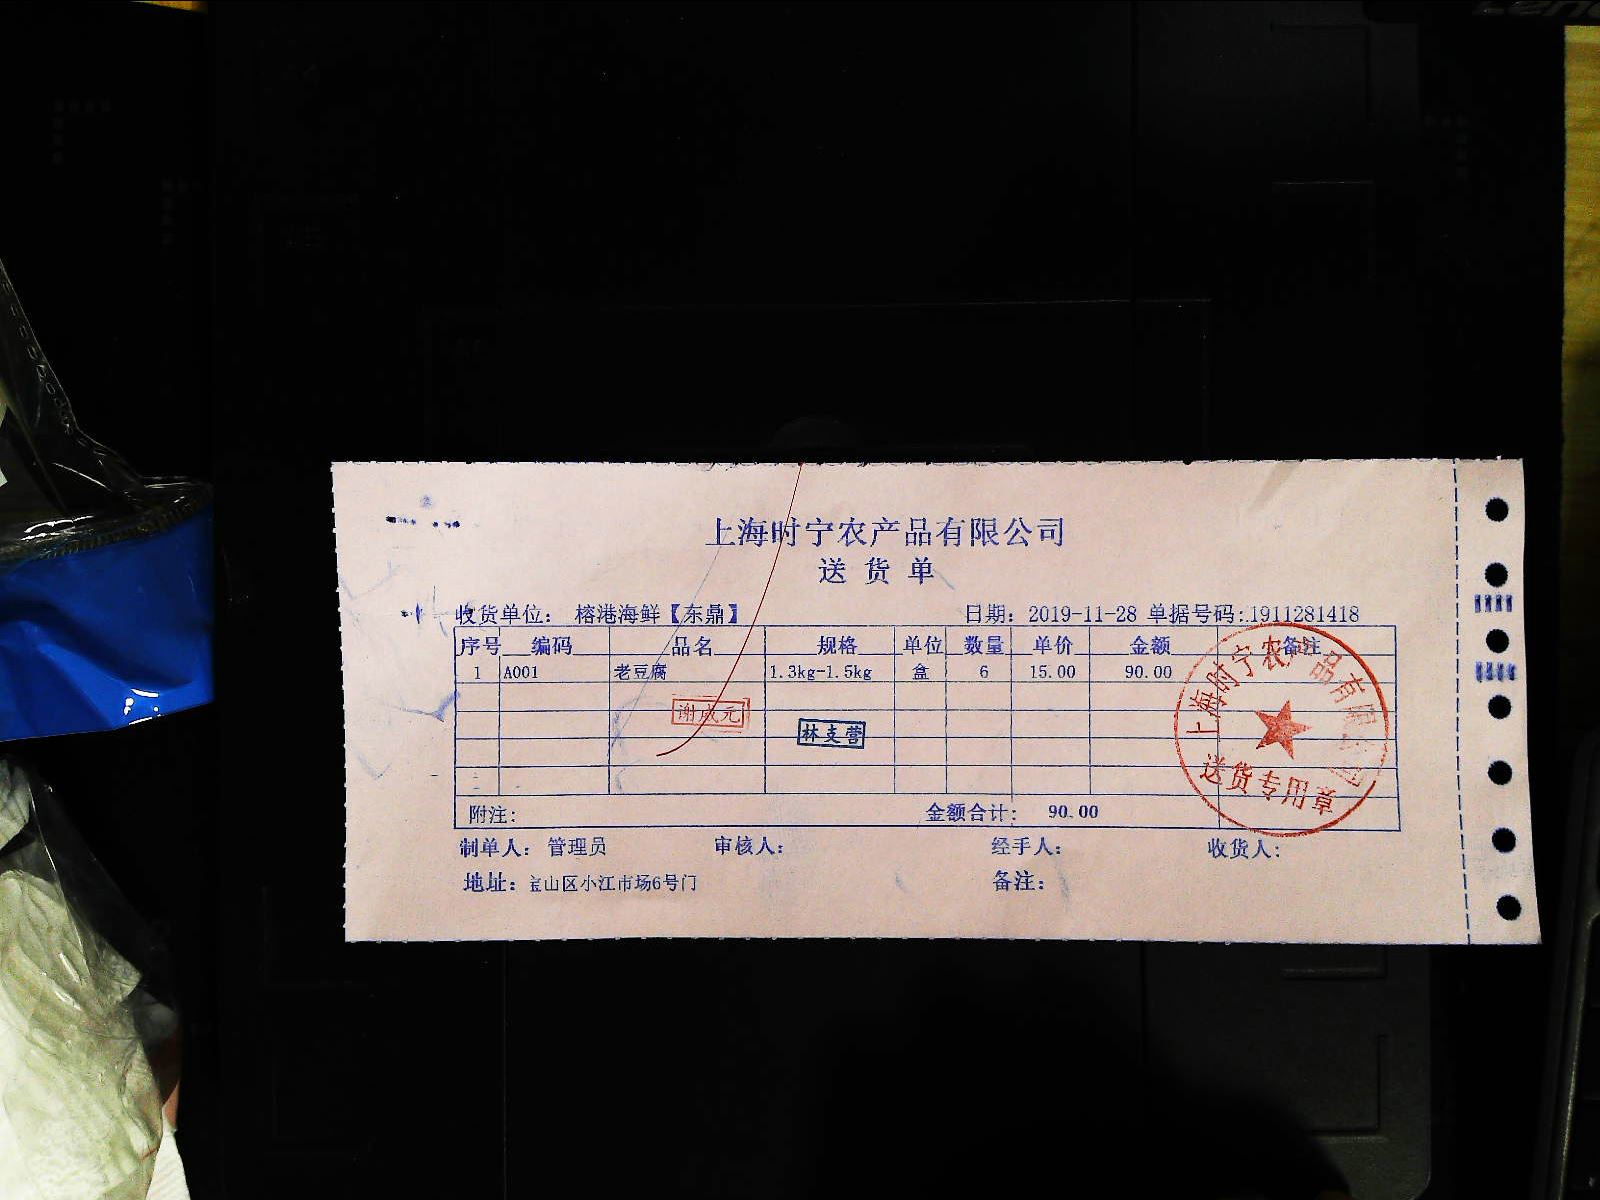 上海时宁农产品有限公司
送货单
收货单位： 榕港海鲜【东鼎】 日期：2019-11-28 单据号码：1911281418
序号 编码 品名 规格 单位 数量 单价 金额 备注
1 A001 老豆腐 1.3kg-1.5kg 盒 6 15.00 90.00
谢成元
林支营
上海时宁农产品有限公司
送货专用章
附注： 金额合计： 90.00
制单人： 管理员 审核人： 经手人： 收货人：
地址：宝山区小江市场6号门 备注：